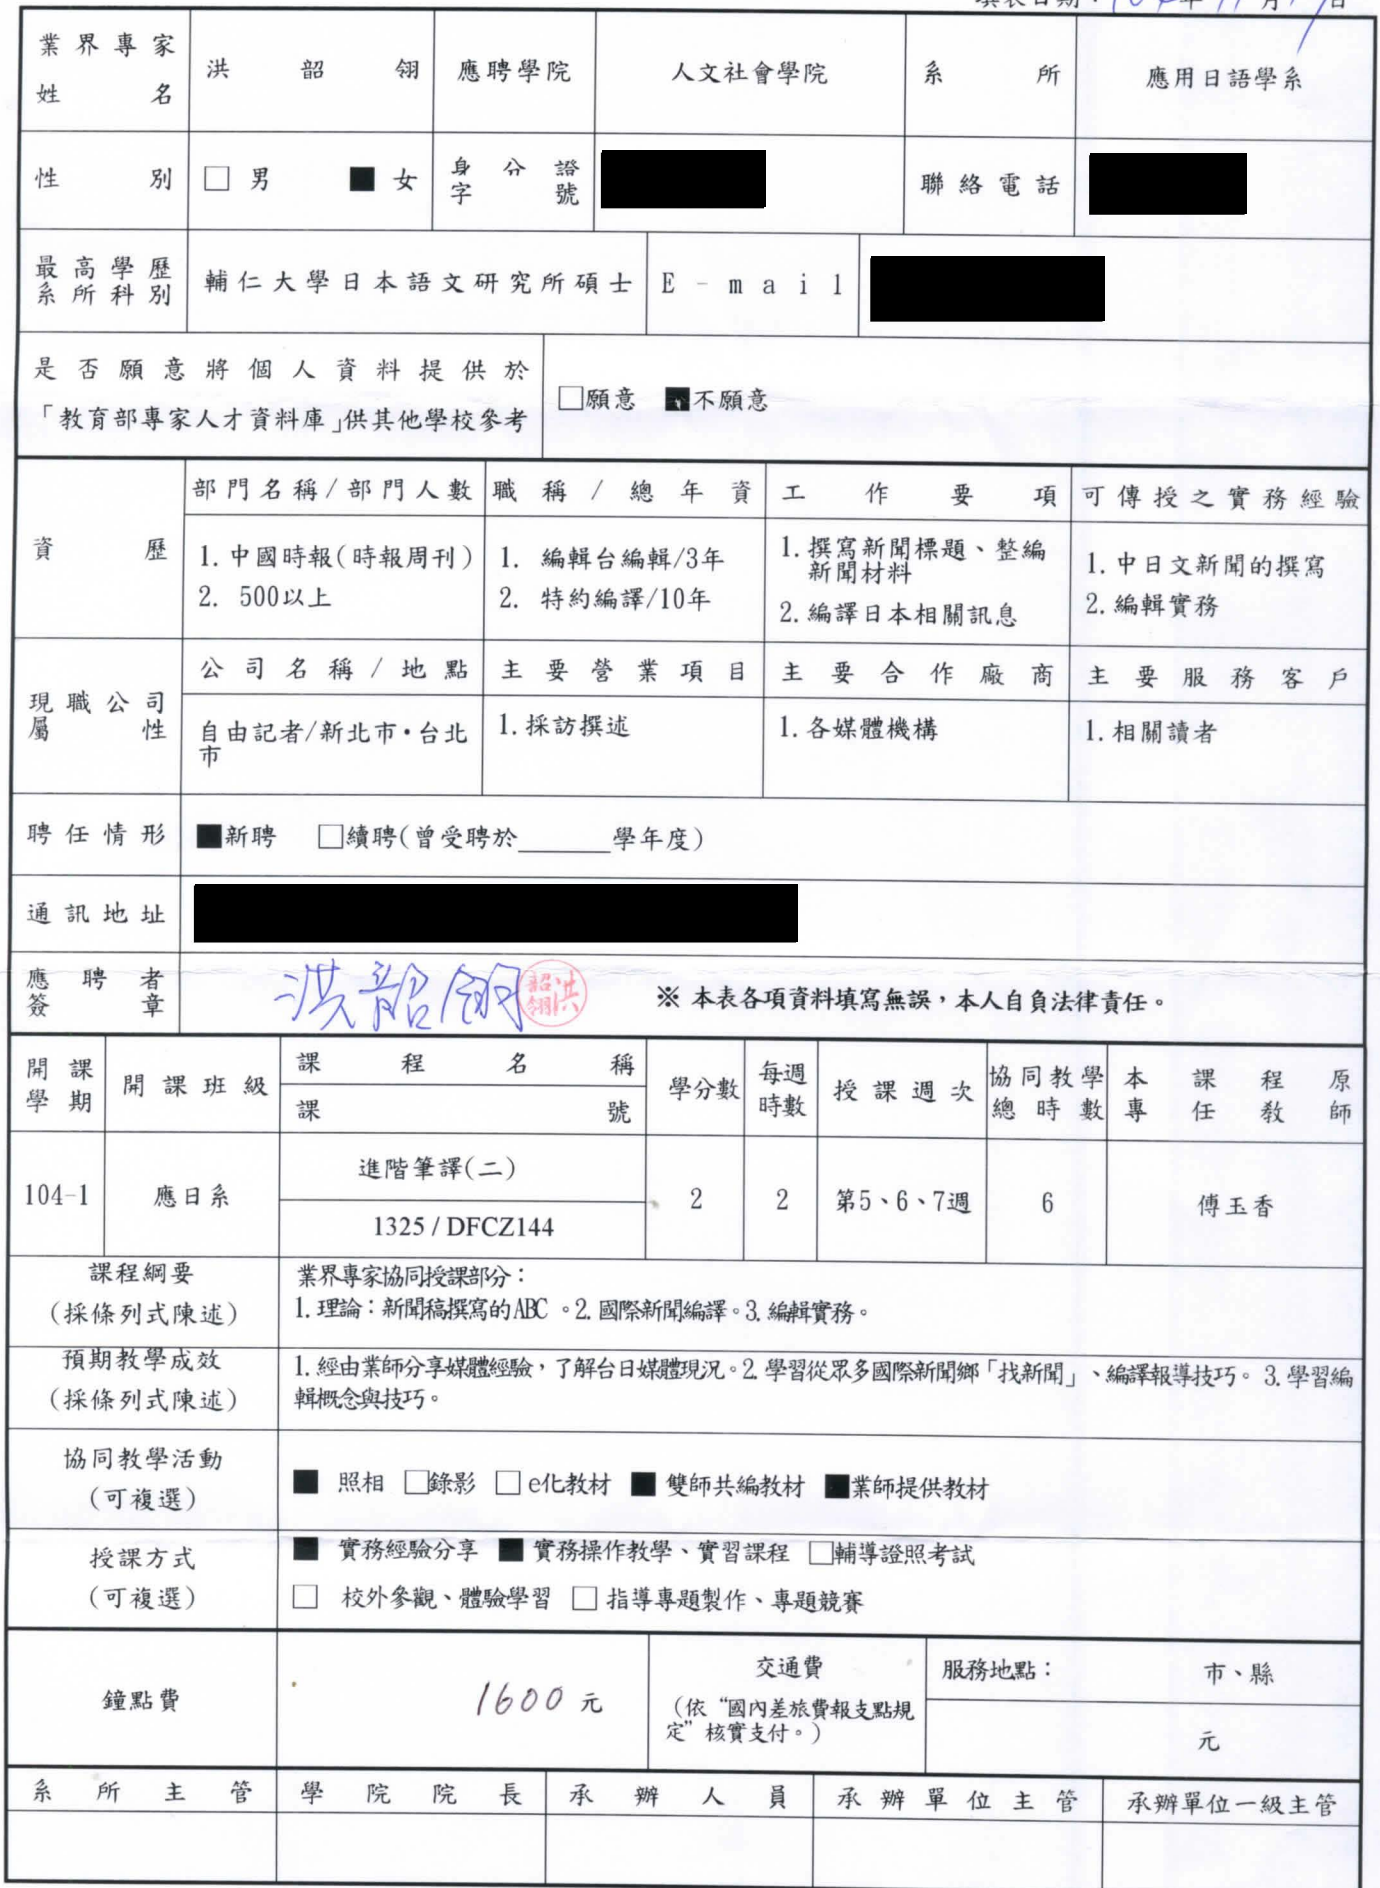 填表日期：104年11月 日
業界專家姓名 洪韶翎 應聘學院 人文社會學院 系所 應用日語學系
性別 □男 ■女 身分證字號 聯絡電話
最高學歷系所科別 輔仁大學日本語文研究所碩士 E-mail
是否願意將個人資料提供於
「教育部專家人才資料庫」供其他學校參考
□願意 ■不願意
資歷
部門名稱/部門人數 職稱/總年資 工作要項 可傳授之實務經驗
1. 中國時報(時報周刊)
2. 500以上
1. 編輯台編輯/3年
2. 特約編譯/10年
1. 撰寫新聞標題、整編
新聞材料
2. 編譯日本相關訊息
1. 中日文新聞的撰寫
2. 編輯實務
現職公司屬性
公司名稱/地點 主要營業項目 主要合作廠商 主要服務客戶
自由記者/新北市・台北
市
1. 採訪撰述
1. 各媒體機構
1. 相關讀者
聘任情形 ■新聘 □續聘(曾受聘於______學年度)
通訊地址
應聘者簽章 洪韶翎 洪韶翎 ※ 本表各項資料填寫無誤，本人自負法律責任。
開課學期 開課班級 課程名稱 課號 學分數 每週時數 授課週次 協同教學總時數 本課程原專任教師
104-1 應日系 進階筆譯(二) 1325 / DFCZ144 2 2 第5、6、7週 6 傅玉香
課程綱要
(採條列式陳述)
業界專家協同授課部分：
1. 理論：新聞稿撰寫的ABC 。2. 國際新聞編譯。3. 編輯實務。
預期教學成效
(採條列式陳述)
1. 經由業師分享媒體經驗，了解台日媒體現況。2. 學習從眾多國際新聞鄉「找新聞」、編譯報導技巧。 3. 學習編
輯概念與技巧。
協同教學活動
(可複選)
■ 照相 □錄影 □ e化教材 ■ 雙師共編教材 ■業師提供教材
授課方式
(可複選)
■ 實務經驗分享 ■ 實務操作教學、實習課程 □輔導證照考試
□ 校外參觀、體驗學習 □ 指導專題製作、專題競賽
鐘點費 1600 元
交通費
(依“國內差旅費報支點規
定”核實支付。)
服務地點： 市、縣
元
系所主管 學院院長 承辦人員 承辦單位主管 承辦單位一級主管